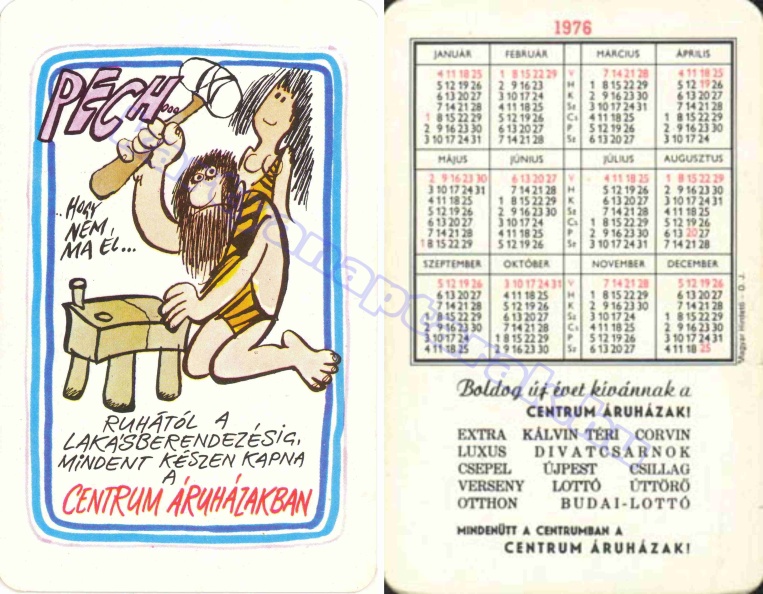 PECH...
..HOGY
NEM
MA ÉL...
RUHÁTÓL A
LAKÁSBERENDEZÉSIG,
MINDENT KÉSZEN KAPNA
A
CENTRUM ÁRUHÁZAKBAN
1976
JANUÁR FEBRUÁR MÁRCIUS ÁPRILIS
4 11 18 25 1 8 15 22 29 V 7 14 21 28 4 11 18 25
5 12 19 26 2 9 16 23 H 1 8 15 22 29 5 12 19 26
6 13 20 27 3 10 17 24 K 2 9 16 23 30 6 13 20 27
7 14 21 28 4 11 18 25 Sz 3 10 17 24 31 7 14 21 28
1 8 15 22 29 5 12 19 26 Cs 4 11 18 25 1 8 15 22 29
2 9 16 23 30 6 13 20 27 P 5 12 19 26 2 9 16 23 30
3 10 17 24 31 7 14 21 28 Sz 6 13 20 27 3 10 17 24
MÁJUS JÚNIUS JÚLIUS AUGUSZTUS
2 9 16 23 30 6 13 20 27 V 4 11 18 25 1 8 15 22 29
3 10 17 24 31 7 14 21 28 H 5 12 19 26 2 9 16 23 30
4 11 18 25 1 8 15 22 29 K 6 13 20 27 3 10 17 24 31
5 12 19 26 2 9 16 23 30 Sz 7 14 21 28 4 11 18 25
6 13 20 27 3 10 17 24 Cs 1 8 15 22 29 5 12 19 26
7 14 21 28 4 11 18 25 P 2 9 16 23 30 6 13 20 27
1 8 15 22 29 5 12 19 26 Sz 3 10 17 24 31 7 14 21 28
SZEPTEMBER OKTÓBER NOVEMBER DECEMBER
5 12 19 26 3 10 17 24 31 V 7 14 21 28 5 12 19 26
6 13 20 27 4 11 18 25 H 1 8 15 22 29 6 13 20 27
7 14 21 28 5 12 19 26 K 2 9 16 23 30 7 14 21 28
1 8 15 22 29 6 13 20 27 Sz 3 10 17 24 1 8 15 22 29
2 9 16 23 30 7 14 21 28 Cs 4 11 18 25 2 9 16 23 30
3 10 17 24 1 8 15 22 29 P 5 12 19 26 3 10 17 24 31
4 11 18 25 2 9 16 23 30 Sz 6 13 20 27 4 11 18 25
Magyar Hirdető – O. J.
Boldog új évet kívánnak a
CENTRUM ÁRUHÁZAK!
EXTRA KÁLVIN TÉRI CORVIN
LUXUS DIVATCSARNOK
CSEPEL ÚJPEST CSILLAG
VERSENY LOTTÓ ÚTTÖRŐ
OTTHON BUDAI-LOTTÓ
MINDENÜTT A CENTRUMBAN A
CENTRUM ÁRUHÁZAK!